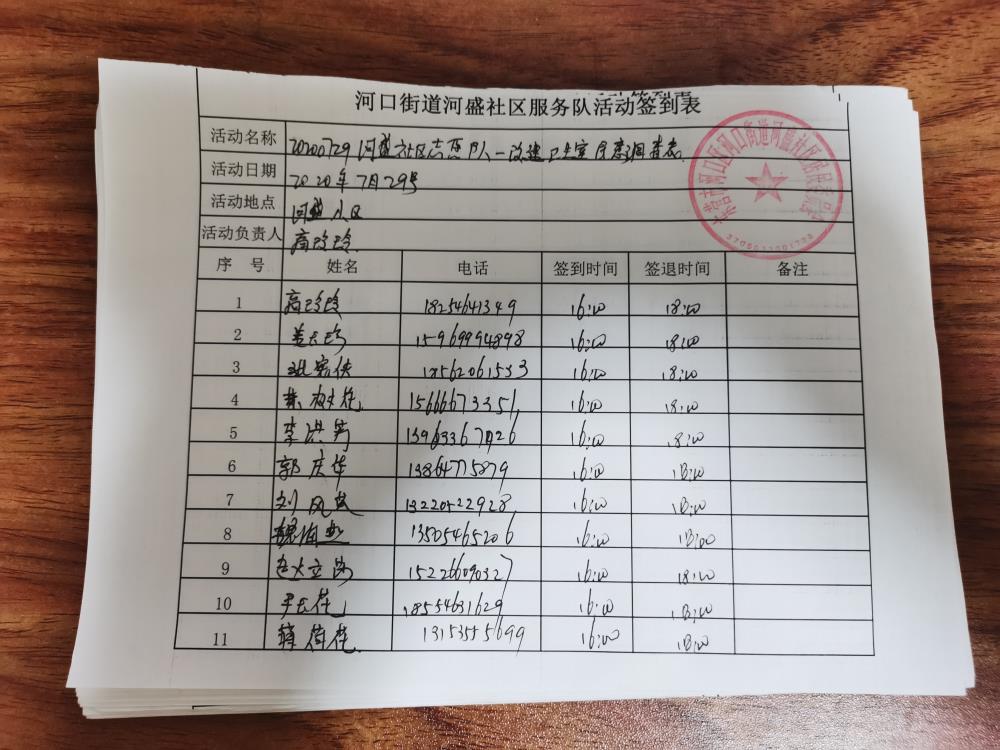 河口街道河盛社区服务队活动签到表
活动名称 20200729河盛社区志愿队一改建卫生室民意调查表
活动日期 2020年7月29号
活动地点 河盛小区
活动负责人 高玲玲
序 号 姓名 电话 签到时间 签退时间 备注
1 高玲玲 18254641349 16:00 18:00
2 15969994898 16:00 18:00
3 18562061533 16:00 18:00
4 15666673351 16:00 18:00
5 李洪芳 13963367026 16:00 18:00
6 郭庆华 13864775879 16:00 18:00
7 刘风英 13220522928 16:00 18:00
8 13505465206 16:00 18:00
9 152266090327 16:00 18:00
10 尹玉花 18554631629 16:00 18:00
11 薛荷花 13153555699 16:00 18:00
东营市河口区河口街道河盛社区居民委员会